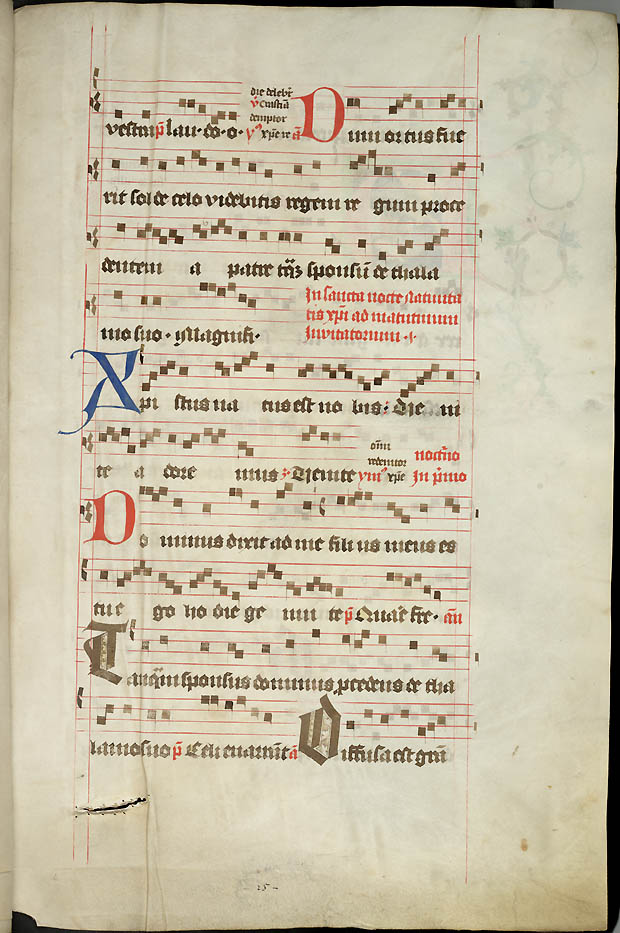 vestra p lau do o. die celebr
v custrū
demptor
v xpe re a Dum ortus fue
rit sol de celo videbitis regem re gum proce
dentem a patre tāqz sponsum de thala
mo suo. Magnifi.
In sancta nocte Nativita
tis xpi ad matutinum
Invitatorium.
Xpi stus na tus est no bis: Ve ni
te a dore mus: Venite
redemtor xpe
nocturno
In primo
Do minus dixit ad me fili us meus es
tu e go ho die ge nui te p Quare fre. an
Tanquam sponsus dominus procedens de tha
lamo suo p Celi enarrant a Diffusa est grā
25